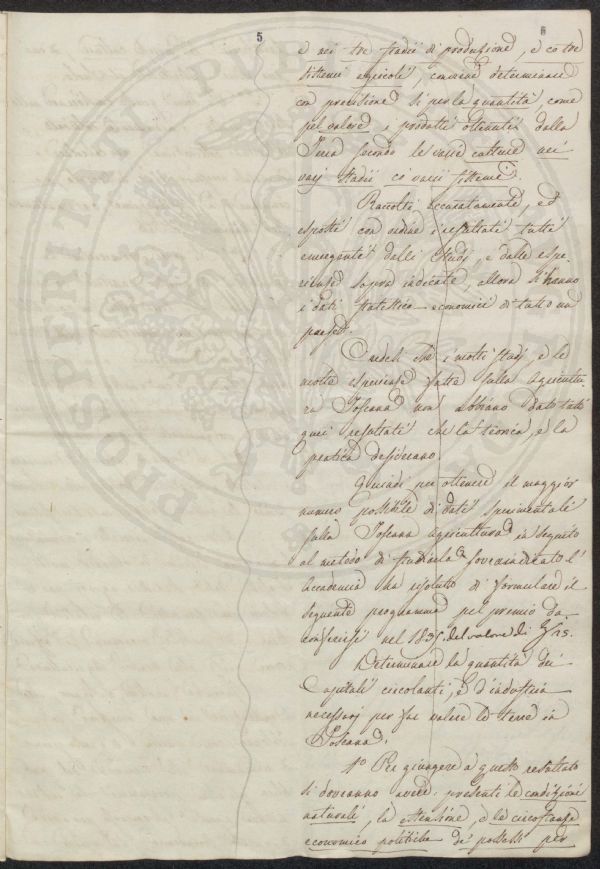 5
6
e nei tre stadii di produzione, e co tre
sistemi agricoli, conviene determinare
con precisione sì per la quantità, come
pel valore i prodotti ottenuti dalla
Terra secondo le varie culture nei
varj stadii co varii sistemi.
Raccolti accuratamente, ed
esposti con ordine i resultati tutti
emergenti dalli studj, e dalle espe-
rienze sopra indicate, allora si hanno
i dati statistico-economici di tutto un
paese.
Credesi che i molti studj, e le
molte esperienze fatte sulla Agricultu-
ra Toscana non abbiano dato tutti
quei resultati che la teorica, e la
pratica desiderano.
Quindi per ottenere il maggior
numero possibile di dati sperimentali
sulla Toscana Agricultura in seguito
al metodo di studiarla sovraindicato l'
Accademia ha risoluto di formulare il
seguente programma pel premio da
conferirsi nel 1835. del valore di
Determinare la quantità dei
Capitali circolanti, e d'industria
necessarj per far valere le terre in
Toscana.
1° Per giungere a questo resultato
si dovranno avere presenti le condizioni
naturali, la estensione, e le circostanze
economico politiche de' possessi per
PROSPERITATI PUBLICAE